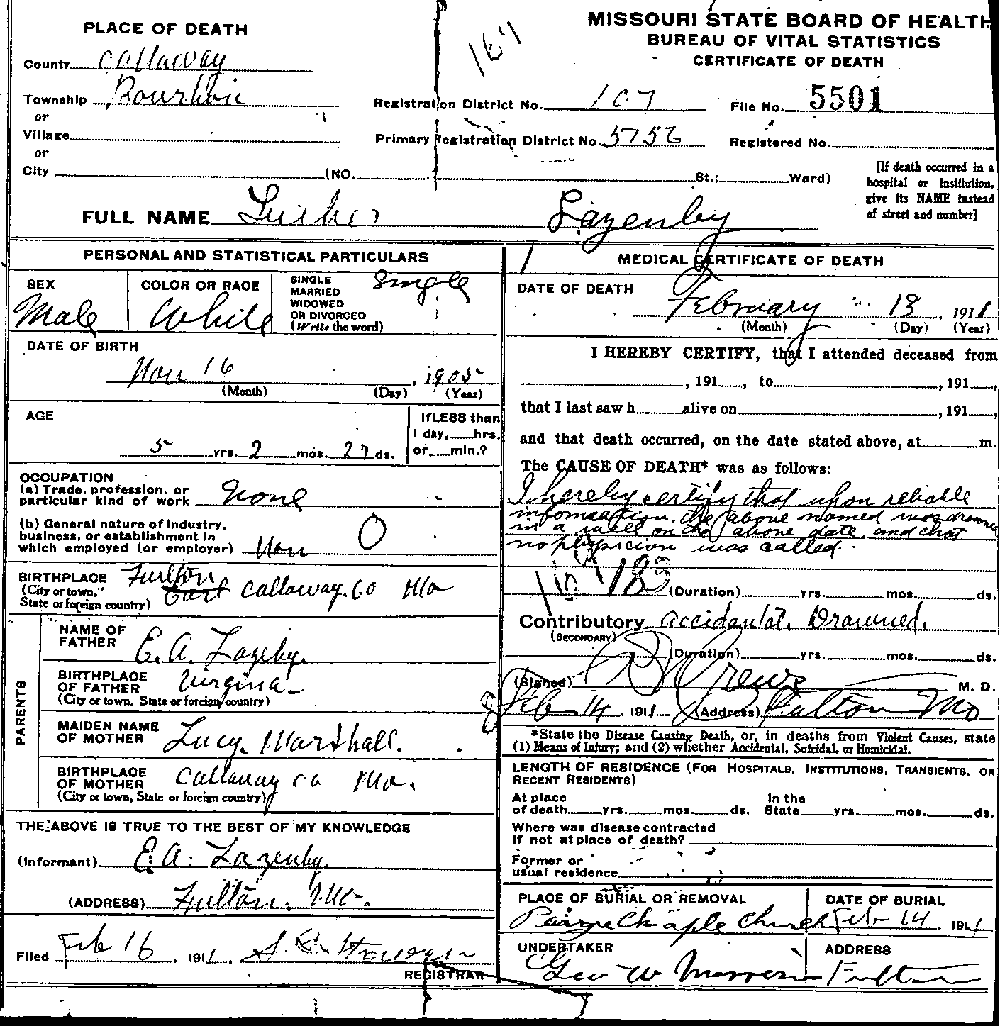 MISSOURI STATE BOARD OF HEALTH
BUREAU OF VITAL STATISTICS
CERTIFICATE OF DEATH
PLACE OF DEATH
County Callaway
Township Bourbon
or
Village
or
City (NO. St.; Ward)
167
Registration District No. 107 File No. 5501
Primary Registration District No. 5156 Registered No.
[If death occurred in a
hospital or institution,
give its NAME instead
of street and number]
FULL NAME Luther Lazenby
PERSONAL AND STATISTICAL PARTICULARS
SEX
Male
COLOR OR RACE
White
SINGLE
MARRIED
WIDOWED
OR DIVORCED
(Write the word)
Single
DATE OF BIRTH
Nov 16, 1905
(Month) (Day) (Year)
AGE
5 yrs. 2 mos. 27 ds.
If LESS than
1 day, hrs.
or min.?
OCCUPATION
(a) Trade, profession, or
particular kind of work None
(b) General nature of industry,
business, or establishment in
which employed (or employer)
BIRTHPLACE
(City or town,
State or foreign country) Fulton Callaway Co Mo
PARENTS
NAME OF
FATHER E. A. Lazenby.
BIRTHPLACE
OF FATHER
(City or town, State or foreign country) Virgina
MAIDEN NAME
OF MOTHER Lucy. Marshall.
BIRTHPLACE
OF MOTHER
(City or town, State or foreign country) Callaway Co Mo.
THE ABOVE IS TRUE TO THE BEST OF MY KNOWLEDGE
(Informant) E. A. Lazenby.
(ADDRESS) Fulton. Mo.
Filed Feb 16, 1911
REGISTRAR
MEDICAL CERTIFICATE OF DEATH
DATE OF DEATH
February 13, 1911
(Month) (Day) (Year)
I HEREBY CERTIFY, that I attended deceased from
, 191 , to , 191 ,
that I last saw h alive on , 191 ,
and that death occurred, on the date stated above, at m.
The CAUSE OF DEATH* was as follows:
I hereby certify that upon reliable
information, the above named was drowned
in a on the above date, and that
no physician was called.
183
(Duration) yrs. mos. ds.
Contributory Accidental. Drowned.
(SECONDARY)
(Duration) yrs. mos. ds.
(Signed) M. D.
Feb 14, 1911 (Address) Fulton Mo
*State the Disease Causing Death, or, in deaths from Violent Causes, state
(1) Means of Injury; and (2) whether Accidental, Suicidal, or Homicidal.
LENGTH OF RESIDENCE (FOR HOSPITALS, INSTITUTIONS, TRANSIENTS, OR
RECENT RESIDENTS)
At place
of death yrs. mos. ds.
In the
State yrs. mos. ds.
Where was disease contracted
if not at place of death?
Former or
usual residence
PLACE OF BURIAL OR REMOVAL
Chaple Church
DATE OF BURIAL
Feb 14 1911
UNDERTAKER
Geo W
ADDRESS
Fulton